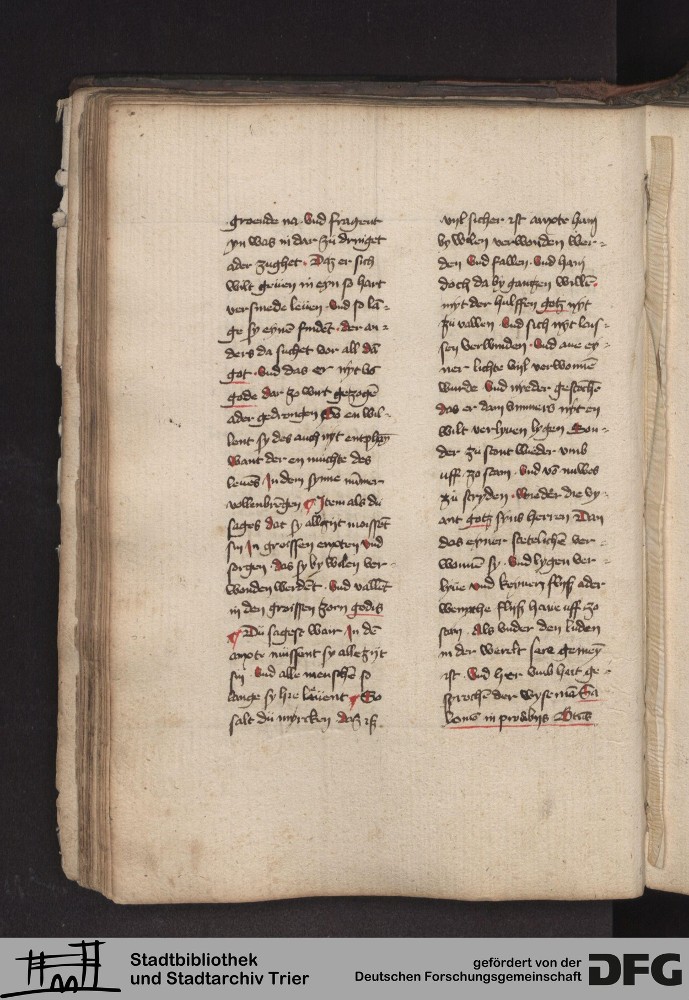 groende na · Vnd fragent
yn was in dar zu dringet
ader zughet · Daz er sich
wilt geuen in eyn so hart
versmede leuen · Vnd so lā-
ge sy eynē findet · der an-
ders da suchet vor all dā
got · Vnd das er nyt vs
gode dar zo wirt getzogē
ader gedrongen en wil-
lent sy des auch nyt
Want der en muchte des
leuēs In dem synne nūmer
vollenbrēgen Item als du
sages dat sy allezijt moissēt
sin In groissen enxten vnd
sorgen · das sy by wilen ver-
wonden werdēt · Vnd vallēt
in den groissen zorn godis
Du sagest wair In dē
anxte muissent sy alle zijt
sin · Vnd alle menschē so
lange sy hie leuent So
salt du myrcken daz is
vijl sicher ist anxte han
by wilen verwonden wer-
den Vnd fallen · Vnd han
doch da by gantzen willē ·
nyt der hulffen gotz nyt
zu vallen · Vnd sich nyt lais-
sen verwinden · Vnd aue ey-
ner lichte vijl verwonnē
wurde Vnd nyeder gestochē
das er dan vmmers nyt en
wilt verlyuen lygen Son-
der zu stont wieder vmb
uff zo stain · Vnd vs nuwes
zu stryden · Wieder die vy-
ant gotz syns herren Dan
das eyner stetelichē ver-
wonnē sy · Vnd lygen ver-
lyue vnd keynen flyß ader
weniche flyß haue uff zo
stain · Als vnder den luden
in der werlt sare gemey
ist · Vnd her vmb hait ge-
sprochē der wyse mā Sa
lomō in prouerbijs
Stadtbibliothek
und Stadtarchiv Trier
gefördert von der
Deutschen Forschungsgemeinschaft
DFG